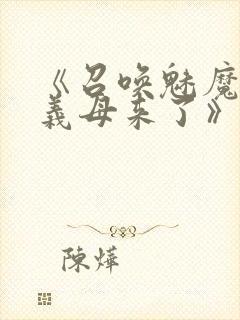 《召唤魅魔
義母来了》
陳燁